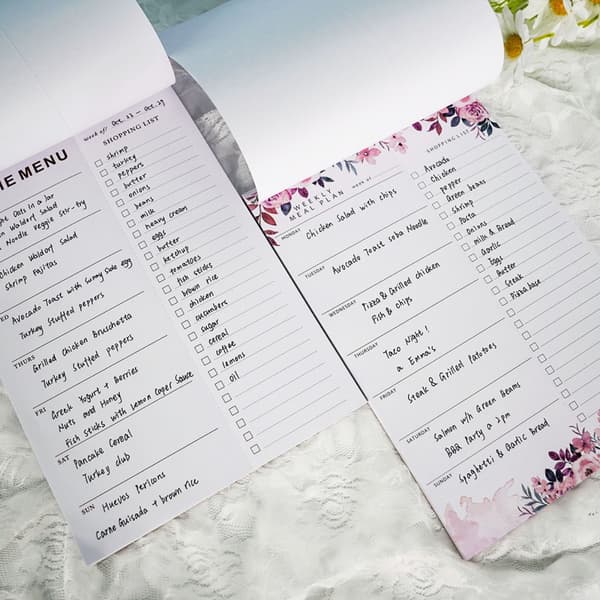 IE MENU
Oats in a Jar
Waldorf Salad
Noodle Veggie Stir-fry
Chicken Waldorf Salad
Shrimp Fajitas
Avocado Toast with Sunny Side egg
Turkey Stuffed peppers
THURS
Grilled Chicken Bruschetta
Turkey Stuffed peppers
FRI
Greek Yogurt + Berries
Nuts and Honey
Fish Sticks with Lemon Caper Sauce
SAT
Pancake Cereal
Turkey Club
SUN
Huevos Pericons
Carne Guisada + brown rice
week of: Oct. 23 – Oct. 29
SHOPPING LIST
shrimp
turkey
peppers
butter
onions
beans
milk
heavy cream
eggs
butter
ketchup
tomatoes
fish sticks
brown rice
chicken
cucumbers
sugar
cereal
coffee
lemons
oil
WEEKLY
MEAL PLAN
WEEK OF
MONDAY
Chicken Salad with chips
TUESDAY
Avocado Toast soba Noodle
WEDNESDAY
Pizza & Grilled chicken
Fish & chips
THURSDAY
Taco Night!
@ Emma's
FRIDAY
Steak & Grilled Potatoes
SATURDAY
Salmon w/h Green Beans
BBQ Party @ 2pm
SUNDAY
Spaghetti & Garlic Bread
SHOPPING LIST
Avocado
chicken
pepper
Green beans
shrimp
Pasta
Onions
milk & Bread
Garlic
Eggs
Butter
Steak
Pizza base